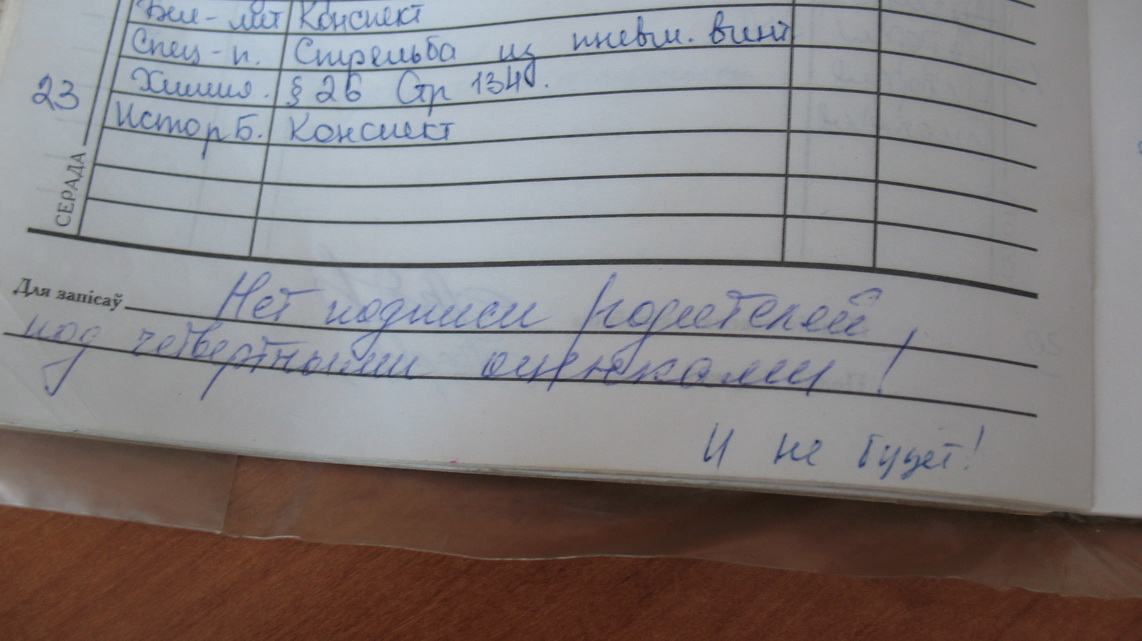 Бел-лит Конспект
Спец-п. Стрельба из пневм. винт
23 Химия. § 26 Стр 134.
Истор Б. Конспект
СЕРАДА
Для запісаў Нет подписи родителей
под четвертными оценками!
И не будет!